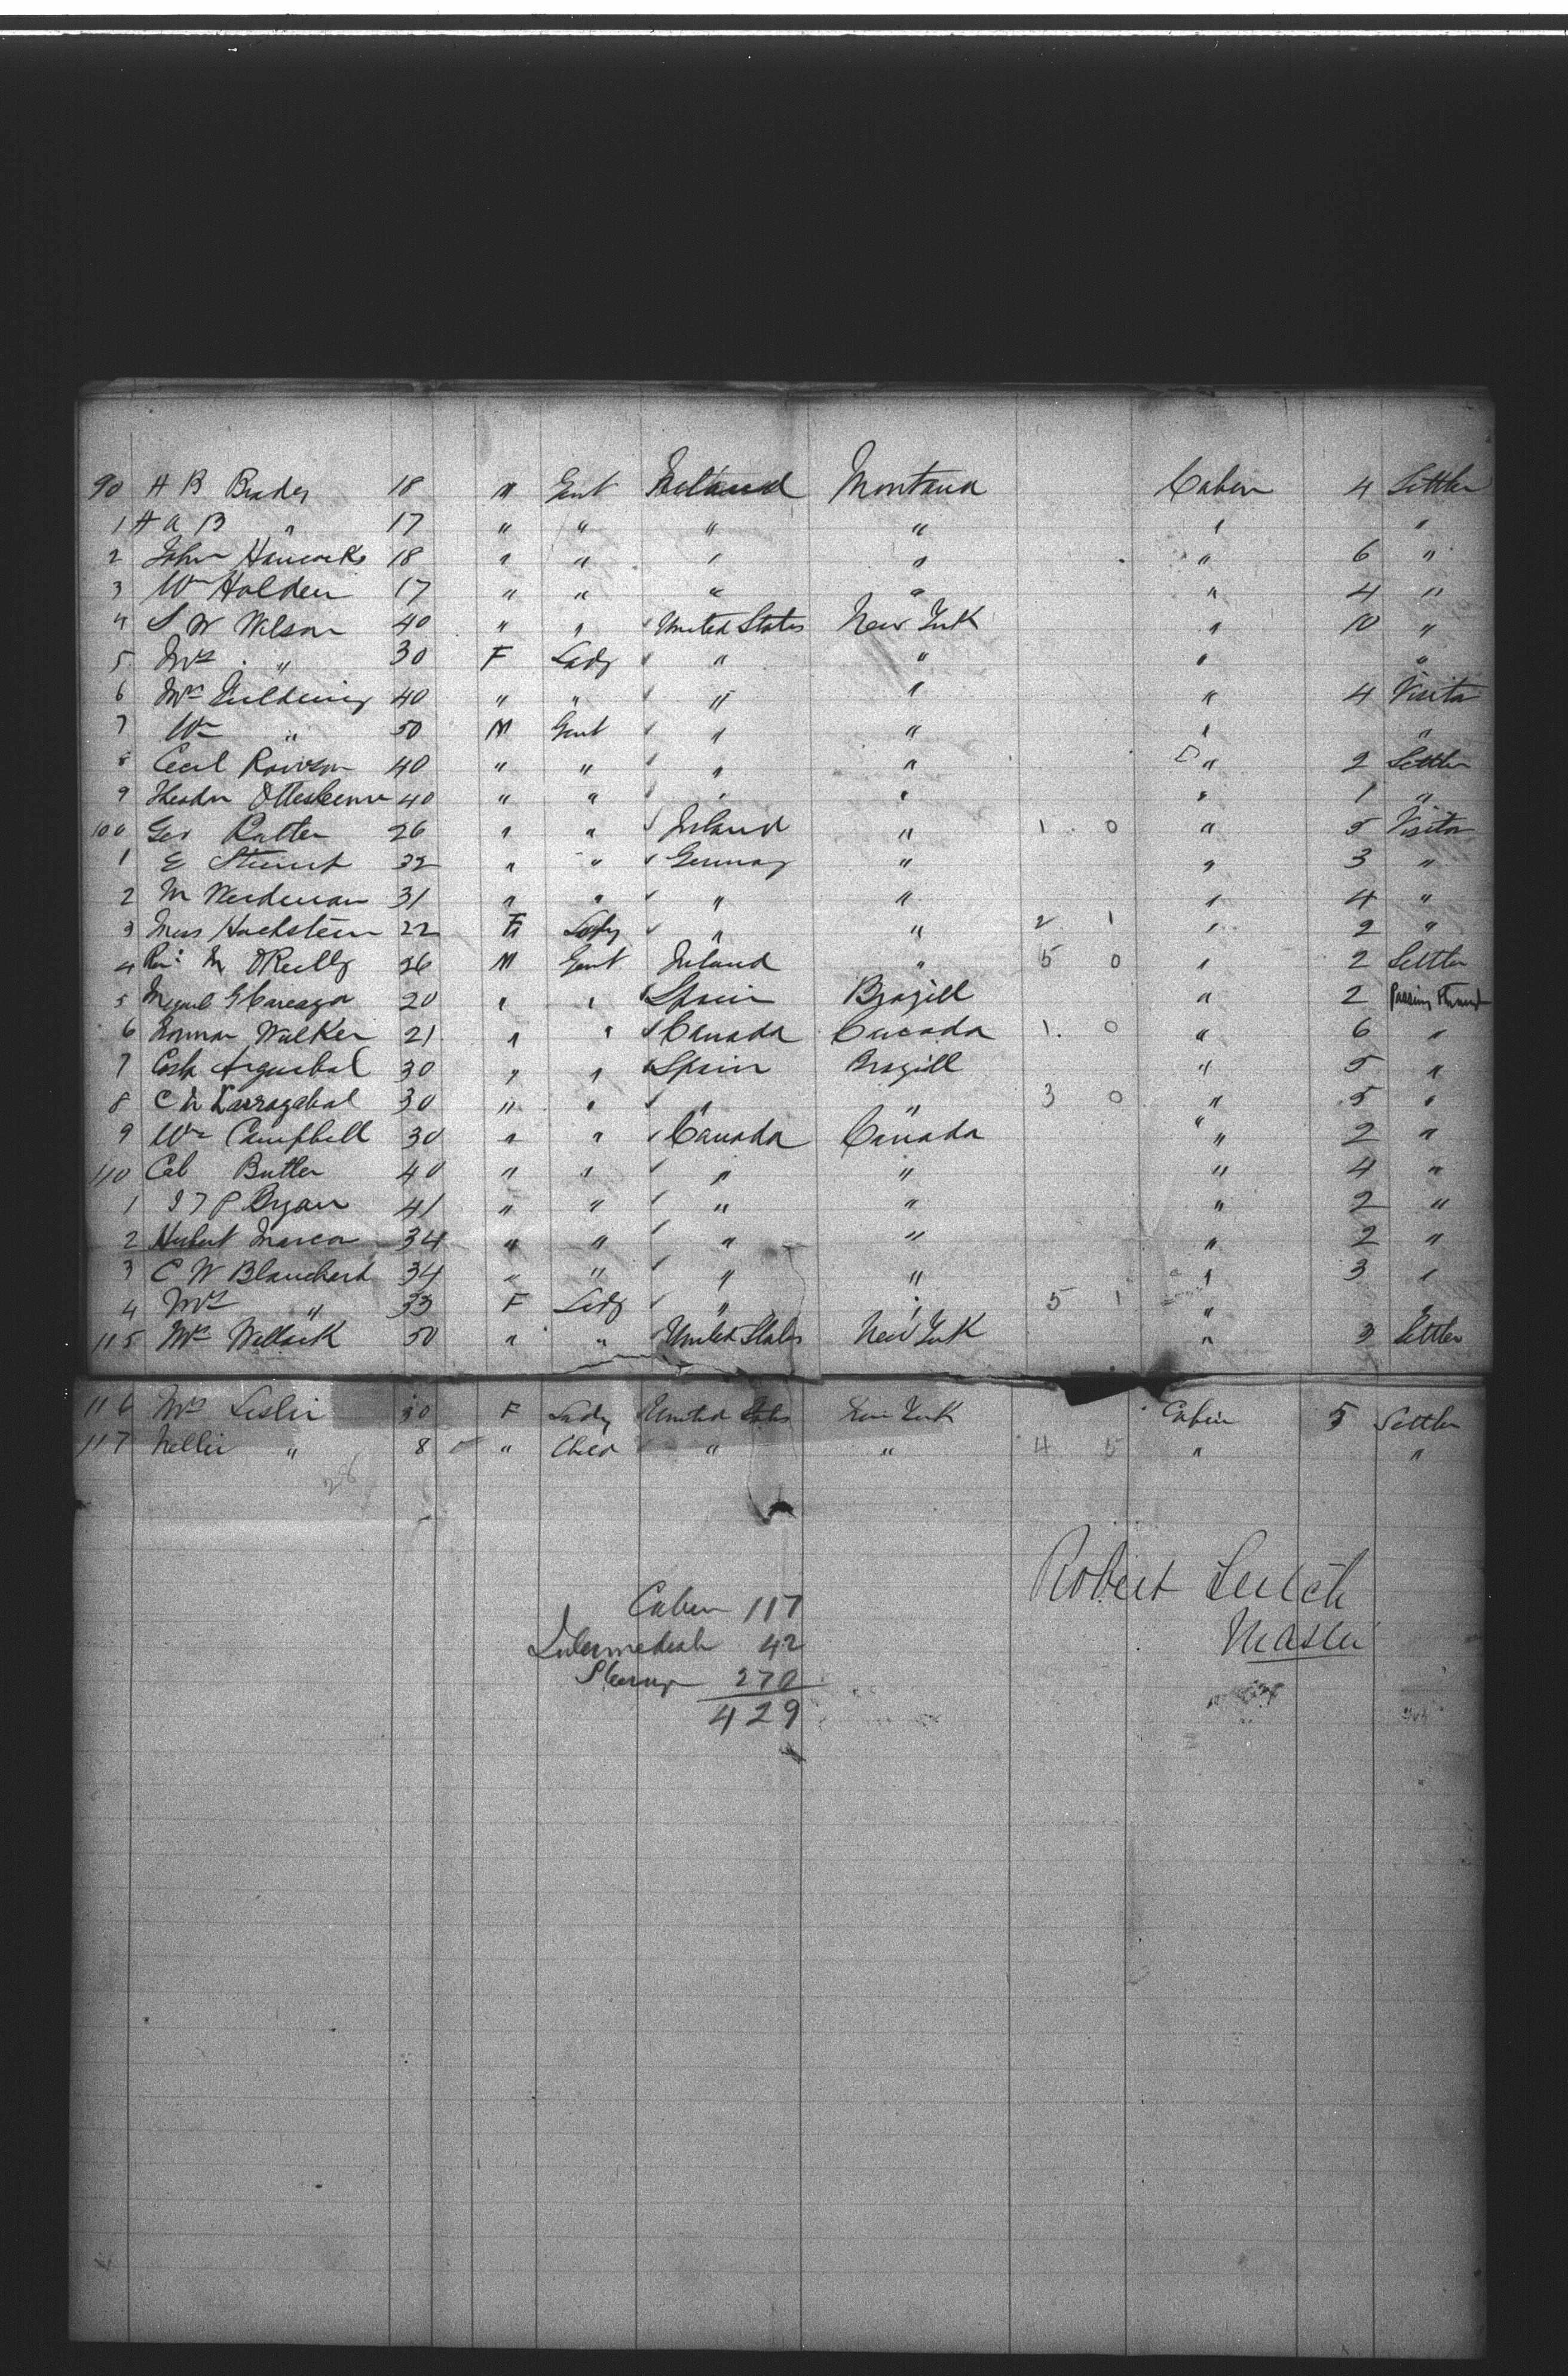 90 H B Brady 18 M Gent Ireland Montana Cabin 4 Settler
1 H A B " 17 " " " " " "
2 John Hancocks 18 " " " " " 6 "
3 Wm Holden 17 " " " " " 4 "
4 S W Wilson 40 " " United States New York " 10 "
5 Mrs " 30 F Lady " " " "
6 Mrs 40 " " " " " 4 Visitor
7 Wm " 50 M Gent " " " "
8 Cecil Rawson 40 " " " " " 2 Settler
9 40 " " " " " 1 "
100 Geo Rutter 26 " " Ireland " 1 0 " 5 Visitor
1 E 32 " " Germany " " 3 "
2 M 31 " " " " " 4 "
3 Miss Hochstein 22 F Lady " " 2 1 " 2 "
4 Rev: M O'Reilly 26 M Gent Ireland " 5 0 " 2 Settler
5 20 " " Spain Brazill " 2 Passing Through
6 Walker 21 " " Canada Canada 1 0 " 6 "
7 30 " " Spain Brazill " 5 "
8 30 " " " " 3 0 " 5 "
9 Wm Campbell 30 " " Canada Canada " 2 "
110 Col Butler 40 " " " " " 4 "
1 J T P Bryan 41 " " " " " 2 "
2 Herbert 34 " " " " " 2 "
3 C W Blanchard 34 " " " " " 3 "
4 Mrs " 33 F Lady " " 5 1 "
115 Mrs Wallack 50 " " United States New York " 3 Settler
116 Mrs Leslie 30 F Lady United States New York Cabin 5 Settler
117 Nellie " 8 " Child " " 4 5 " "
26
Cabin 117
Intermediate 42
Steerage 270
429
Robert Leitch
Master